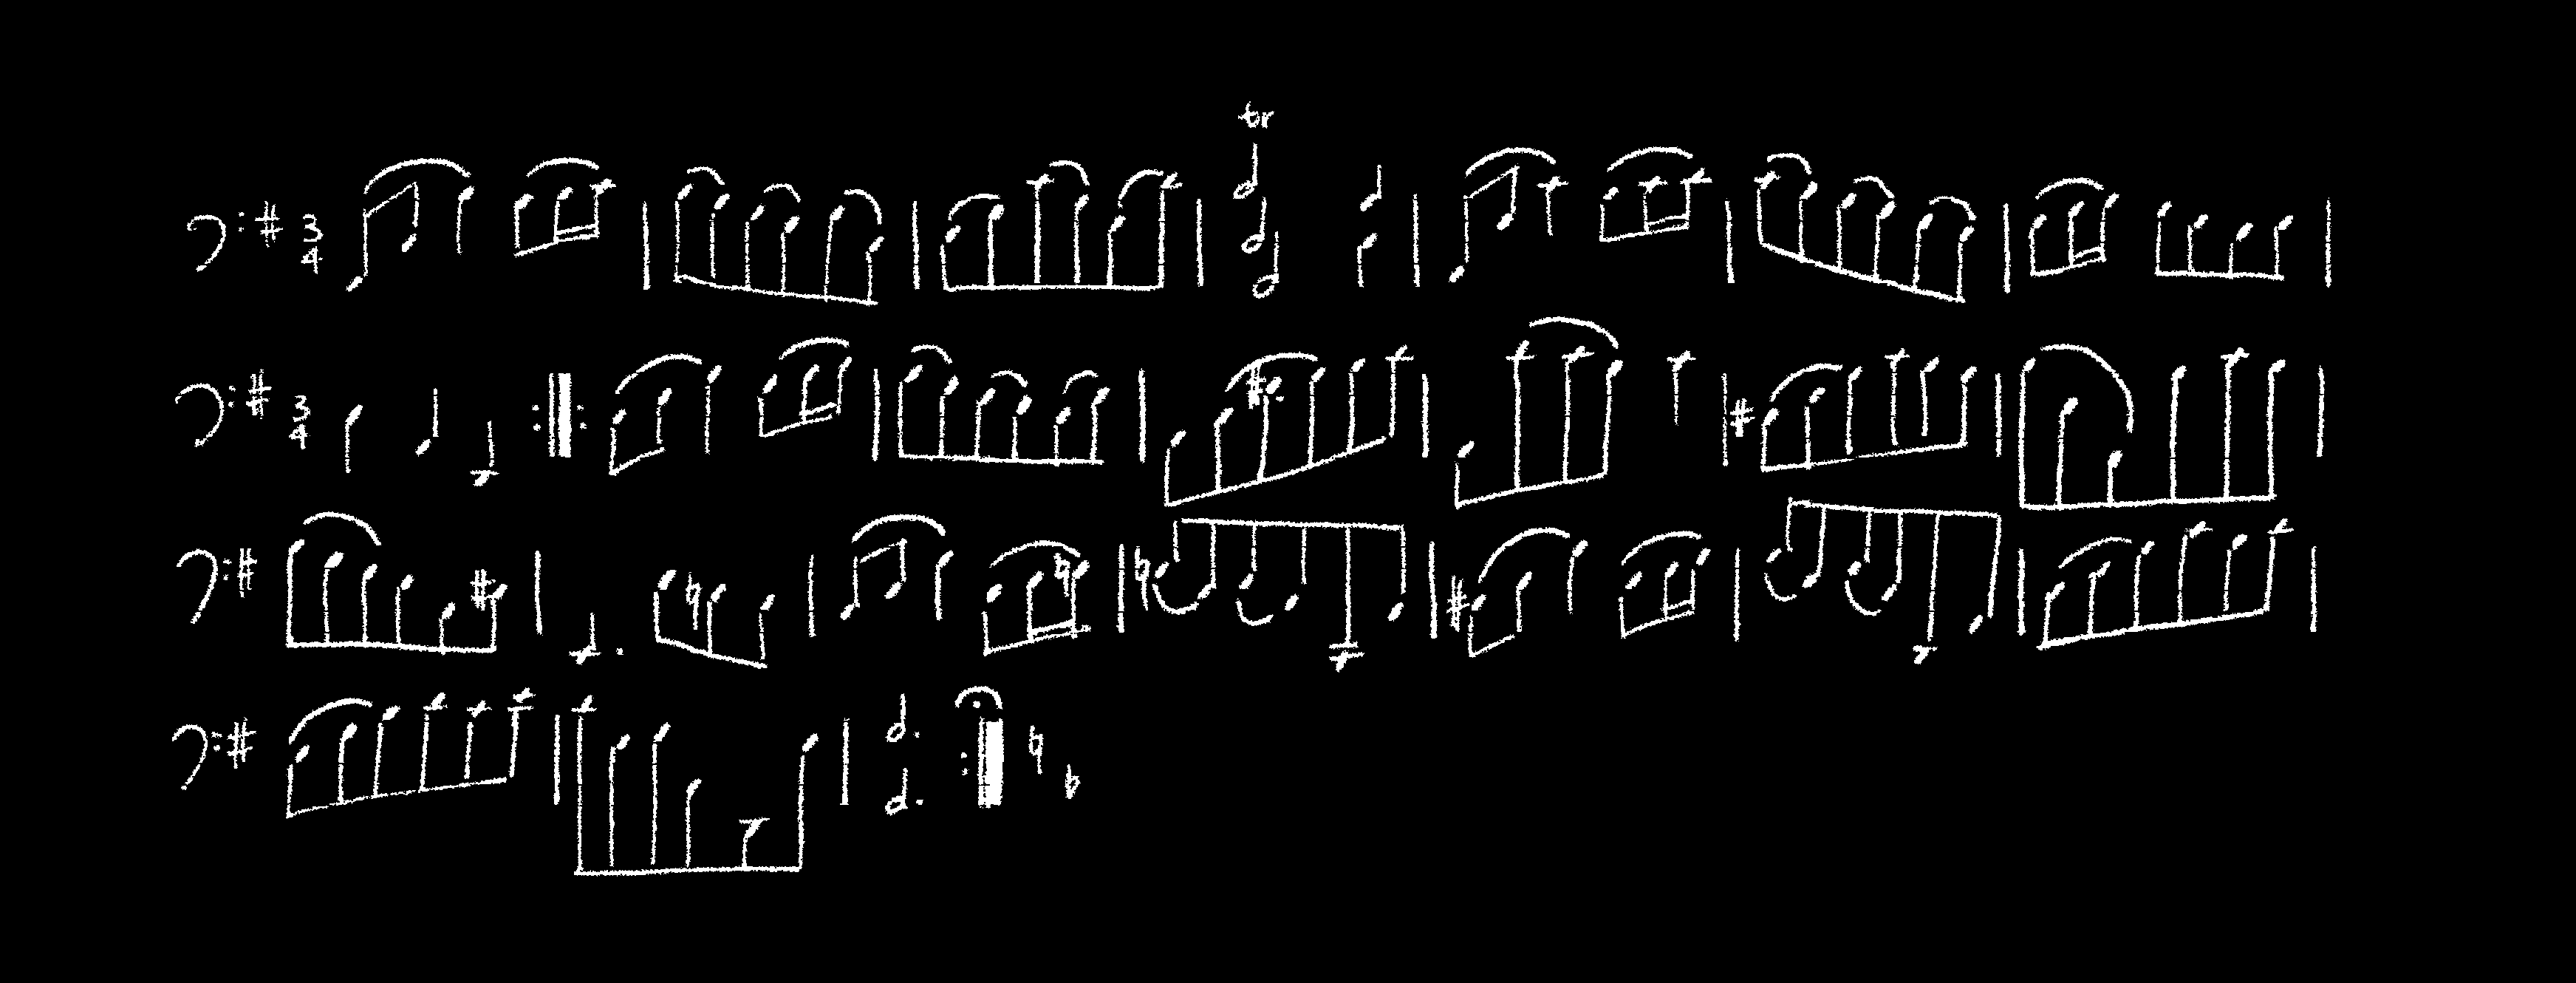 tr
3
4
3
4